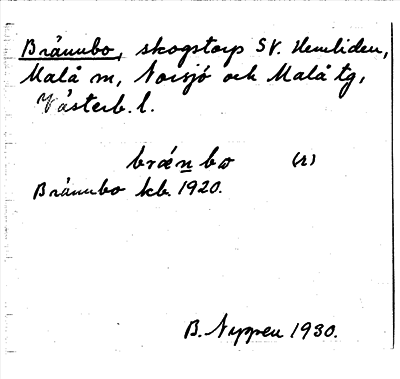 Brännbo, skogstorp SV. Hemliden,
Malå sn, Norsjö och Malå tg,
Västerb. l.
bræ̀n bo (2)
Brännbo kb. 1920.
B. Nyppen 1930.